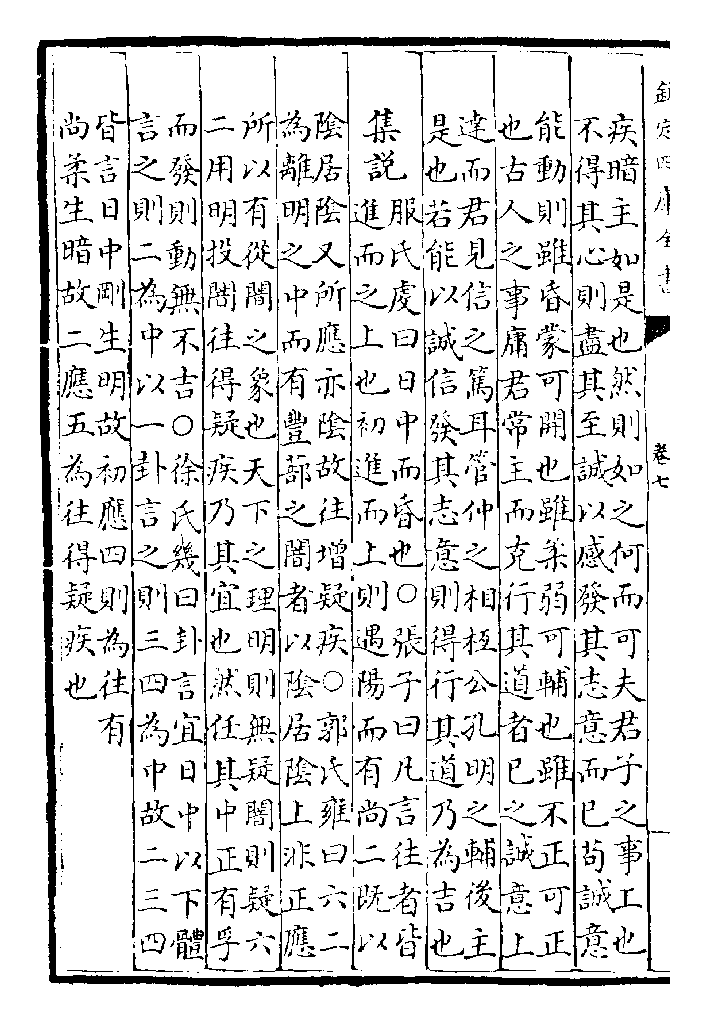 欽定四庫全書
卷七
疾暗主如是也然則如之何而可夫君子之事工也
不得其心則盡其至誠以感發其志意而已苟誠意
能動則雖昏蒙可開也雖柔弱可輔也雖不正可正
也古人之事庸君常主而克行其道者已之誠意上
達而君見信之篤耳管仲之相桓公孔明之輔後主
是也若能以誠信發其志意則得行其道乃為吉也
集說 服氏虔曰日中而昏也○張子曰凡言往者皆
進而之上也初進而上則遇陽而有尚二既以
陰居陰又所應亦陰故往增疑疾○郭氏雍曰六二
為離明之中而有豐蔀之闇者以陰居陰上非正應
所以有從闇之象也天下之理明則無疑闇則疑六
二用明投闇往得疑疾乃其宜也然任其中正有孚
而發則動無不吉○徐氏幾曰卦言宜日中以下體
言之則二為中以一卦言之則三四為中故二三四
皆言日中剛生明故初應四則為往有
尚柔生暗故二應五為往得疑疾也